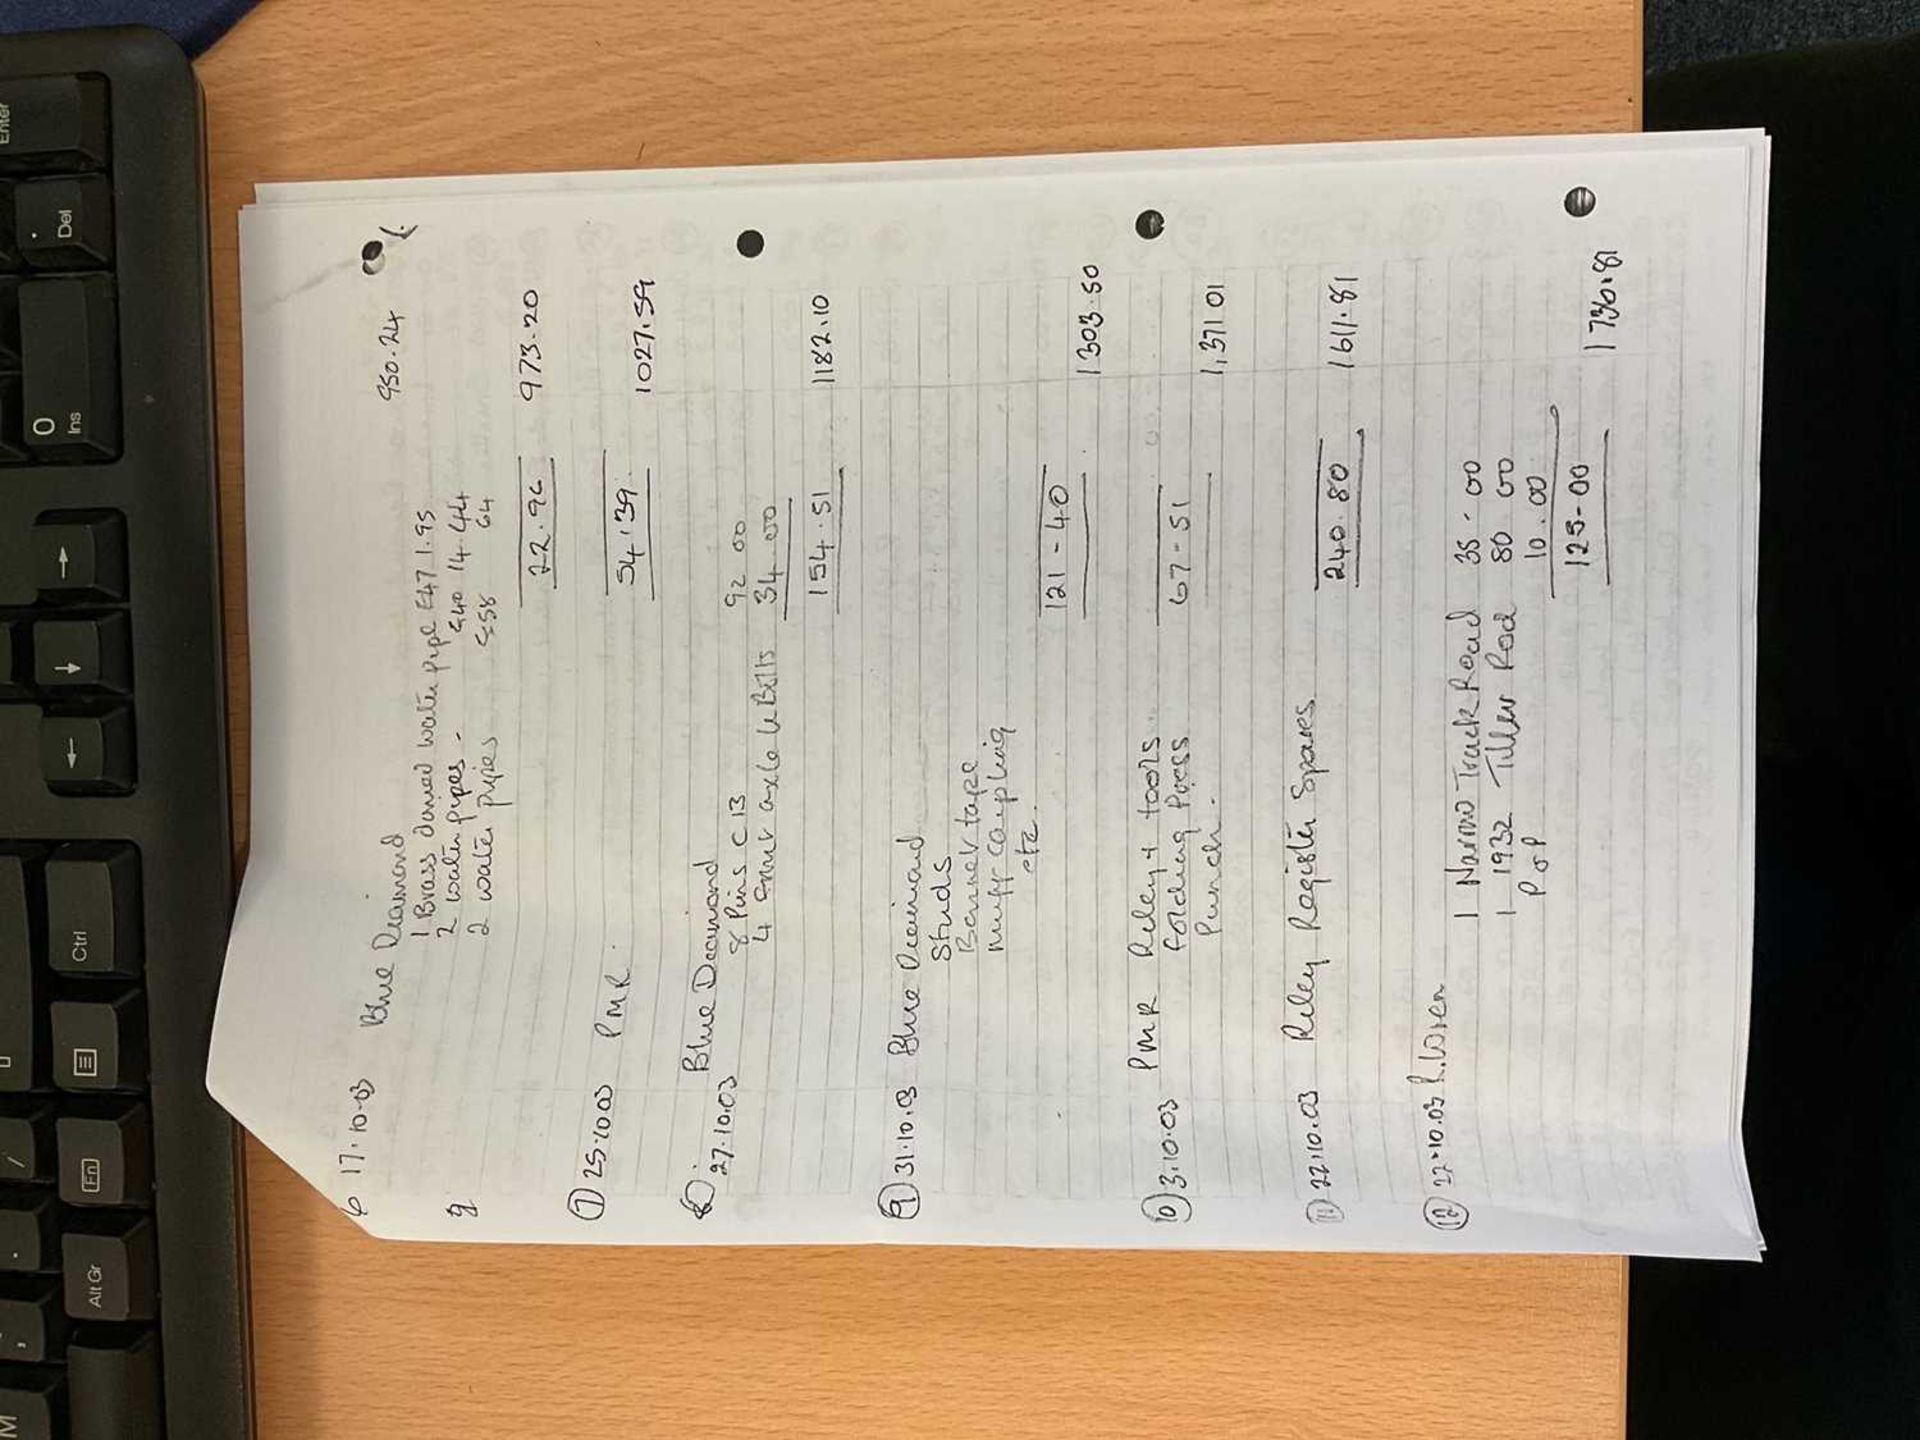 950.24
6 17.10.03 Blue Diamond
1 Brass domed water pipe E47 1.95
2 water pipes - 14.44
2 water pipes 64
22.96 973.20
7 25.10.03 PMR.
54.39 1027.59
8 27.10.03 Blue Diamond
8 Pins C13 92 00
4 front axle U Bolts 34.00
154.51 1182.10
9 31.10.03 Blue Diamond
Studs
Bonnet tape
muff coupling
etc.
121-40 1303.50
10 3.10.03 PMR Riley + tools
folding
Punch.
67-51 1,371 01
11 22.10.03 Riley Register Spares
240.80 1611.81
12 22.10.03 R. Wren
1 Narrow Track Road 35-00
1 1932 Tiller Rod 80 00
P o P 10.00
125-00 1736.81
Enter
. Del
0 Ins
Ctrl
Fn
Alt Gr
/
.
,
M